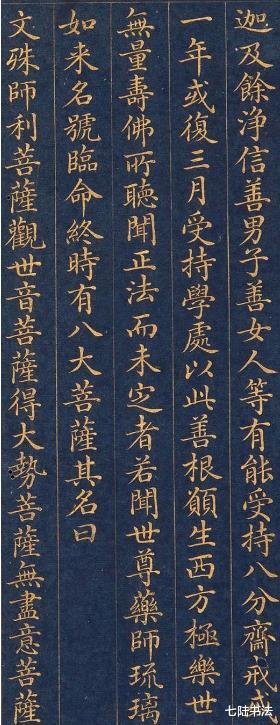 迦及餘淨信善男子善女人等有能受持八分齋戒
一年或復三月受持學處以此善根願生西方極樂世
無量壽佛所聽聞正法而未定者若聞世尊藥師琉璃
如来名號臨命終時有八大菩薩其名曰
文殊師利菩薩觀世音菩薩得大勢菩薩無盡意菩薩
七陆书法